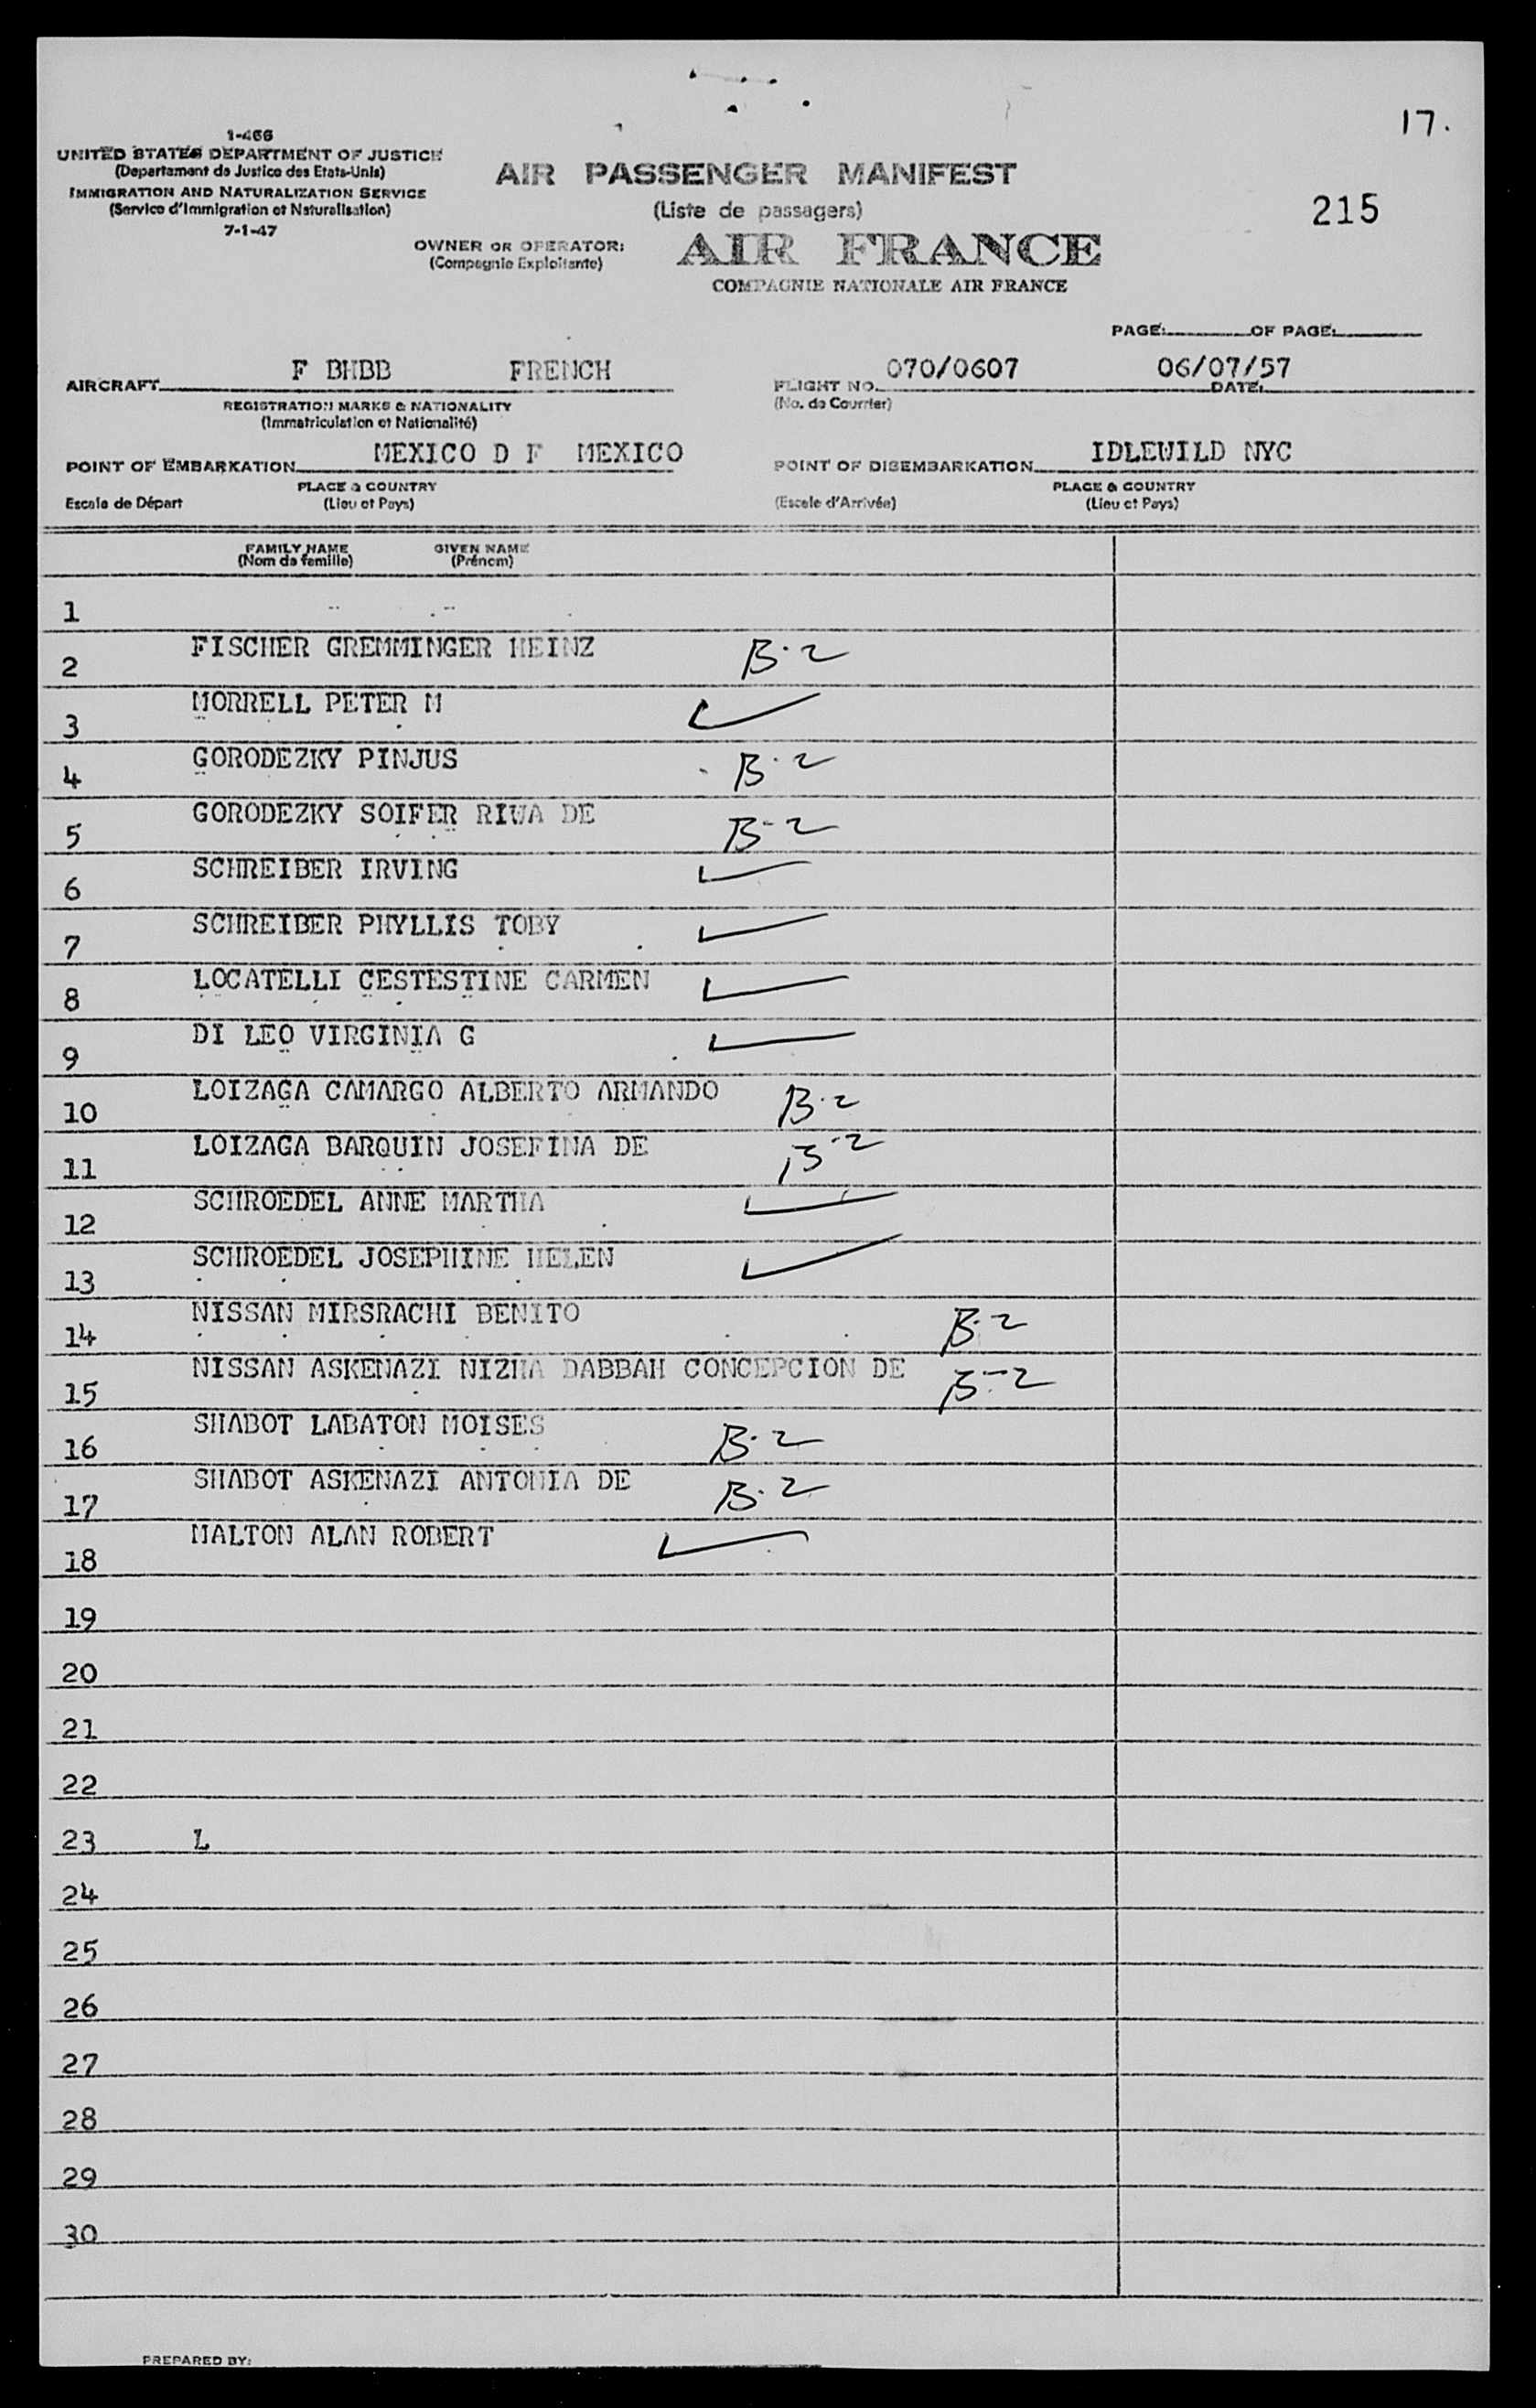 17.
1-466
UNITED STATES DEPARTMENT OF JUSTICE
(Departament de Justice des Etats-Unis)
IMMIGRATION AND NATURALIZATION SERVICE
(Service d'Immigration et Naturalisation)
7-1-47
AIR PASSENGER MANIFEST
(Liste de passagers)
215
OWNER OR OPERATOR: AIR FRANCE
(Compagnie Exploitante)
COMPAGNIE NATIONALE AIR FRANCE
PAGE: OF PAGE:
AIRCRAFT F BHBB FRENCH FLIGHT NO. 070/0607 06/07/57 DATE:
REGISTRATION MARKS & NATIONALITY (No. de Courrier)
(Immatriculation et Nationalité)
POINT OF EMBARKATION MEXICO D F MEXICO POINT OF DISEMBARKATION IDLEWILD NYC
PLACE & COUNTRY PLACE & COUNTRY
Escale de Départ (Lieu et Pays) (Escale d'Arrivée) (Lieu et Pays)
FAMILY NAME GIVEN NAME
(Nom de famille) (Prénom)
1
2 FISCHER GREMMINGER HEINZ B-2
3 MORRELL PETER M ✓
4 GORODEZKY PINJUS B-2
5 GORODEZKY SOIFER RIWA DE B-2
6 SCHREIBER IRVING ✓
7 SCHREIBER PHYLLIS TOBY ✓
8 LOCATELLI CESTESTINE CARMEN ✓
9 DI LEO VIRGINIA G ✓
10 LOIZAGA CAMARGO ALBERTO ARMANDO B-2
11 LOIZAGA BARQUIN JOSEFINA DE B-2
12 SCHROEDEL ANNE MARTHA ✓
13 SCHROEDEL JOSEPHINE HELEN ✓
14 NISSAN MIRSRACHI BENITO B-2
15 NISSAN ASKENAZI NIZHA DABBAH CONCEPCION DE B-2
16 SHABOT LABATON MOISES B-2
17 SHABOT ASKENAZI ANTONIA DE B-2
18 MALTON ALAN ROBERT ✓
19
20
21
22
23 L
24
25
26
27
28
29
30
PREPARED BY: